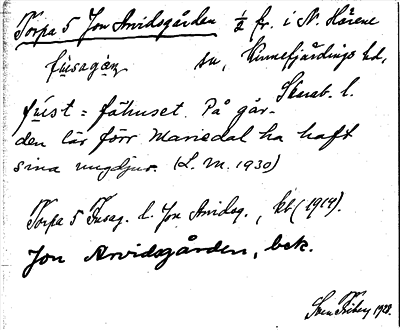 Torpa 5 Jon Arvidsgården 1/2 fr. i N. Härene
fúsagàṇ sn, Kinnefjärdings hd,
Skarab. l.
fúst = fähuset. På går-
den lär förr Mariedal ha haft
sina ungdjur. (L. M. 1930)
Torpa 5 Fusag. l. Jon Arvidsg., kb (1914).
Jon Arvidsgården, bek.
Sven 1928.